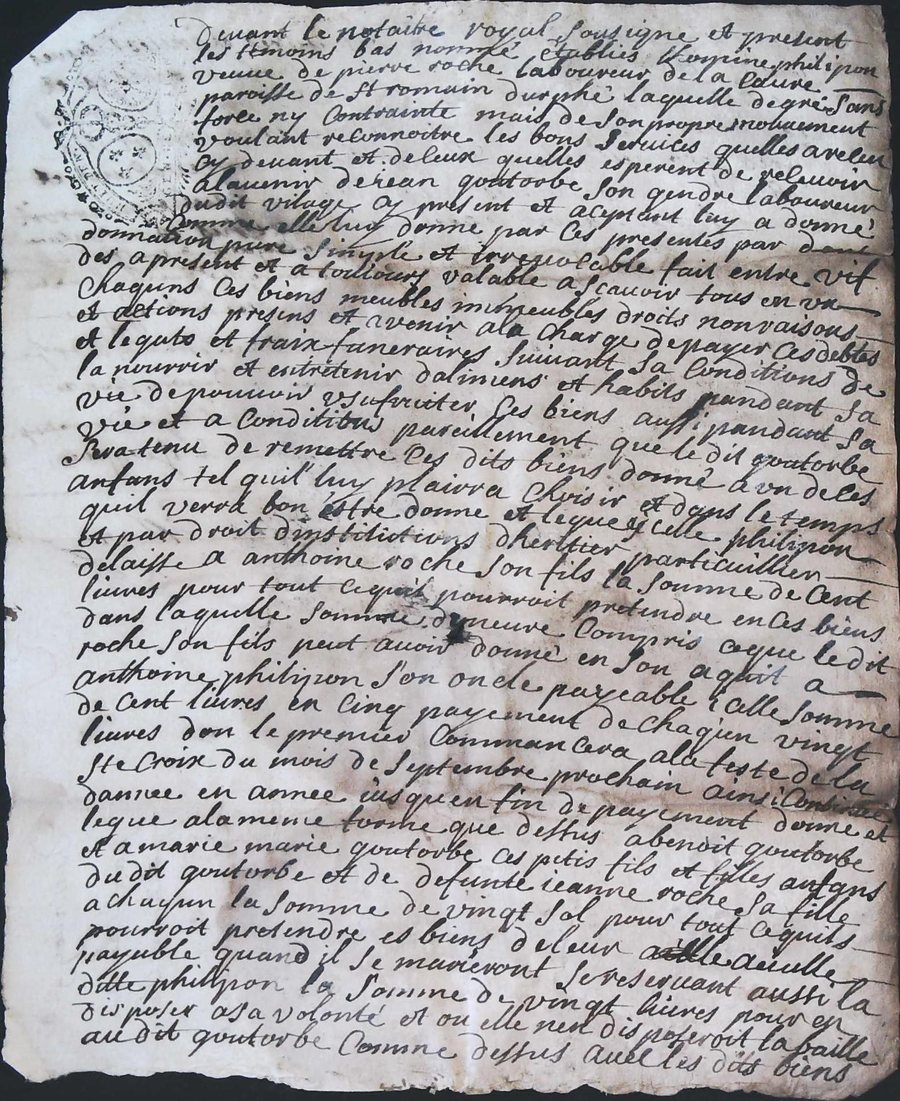 devant le notaitre royal sousigne et present
les temoins bas nommé establies philipon
veuue de pierre roche laboureur de la
paroisse de st romain durphé laquelle degre sans
force ny contrainte mais de son propre mouuement
voulant reconnoitre les bons services quelles a receu
cy devant et deleux quelles esperent de receuoir
alauenir de iean goutorbe son gendre laboureur
dudit vilage cy present et aceptant luy a donné
comme elle luy donne par ces presentes par
donnation pure simple et irreuocable fait entre vif
des apresent et a toutiours valable ascauoir tous en vn
chaguns ces biens meubles immeubles droits nonvaisons
et actions presins et avenir ala charge de payer ces debtes
et legats et fraix funeraires suiuant sa conditions de
la nourrir et entretenir dalimens et habits pandant sa
vie de pouuoir vsufruiter ces biens aussi pandant sa
vie et a conditions pareillement que le dit goutorbe
sera tenu de remettre ces dits biens donné a vn de ces
anfans tel quil luy plairra choisir et dans le temps
quil verra bon estre donne et legue icelle philipon
et par droit dinstitutions dheritier particuillier
delaisse a anthoine roche son fils la somme de cent
liures pour tout cequil pourroit pretendre en ces biens
dans laquelle somme demeure compris ceque ledit
roche son fils peut auoir donné en son aquit a
anthoine philipon son oncle payeable icelle somme
de cent liures en cinq payement de chaqun vingt
liures don le premier commancera ala feste de la
ste croix du mois de septembre prochain ainsi continué
dannee en annee iusquen fin de payement donne et
legue alameme forme que dessus a benoit goutorbe
et a marie marie goutorbe ces petis fils et filles anfans
dudit goutorbe et de defunte ieanne roche sa fille
a chaqun la somme de vingt sol pour tout cequils
pourroit pretendre es biens de leur aeulle
payable quand il se marieront se reseruant aussi la
ditte philipon la somme de vingt liures pour en
disposer a sa volonté et ou elle nen disposeroit la baille
audit goutorbe comme dessus auel les dits biens